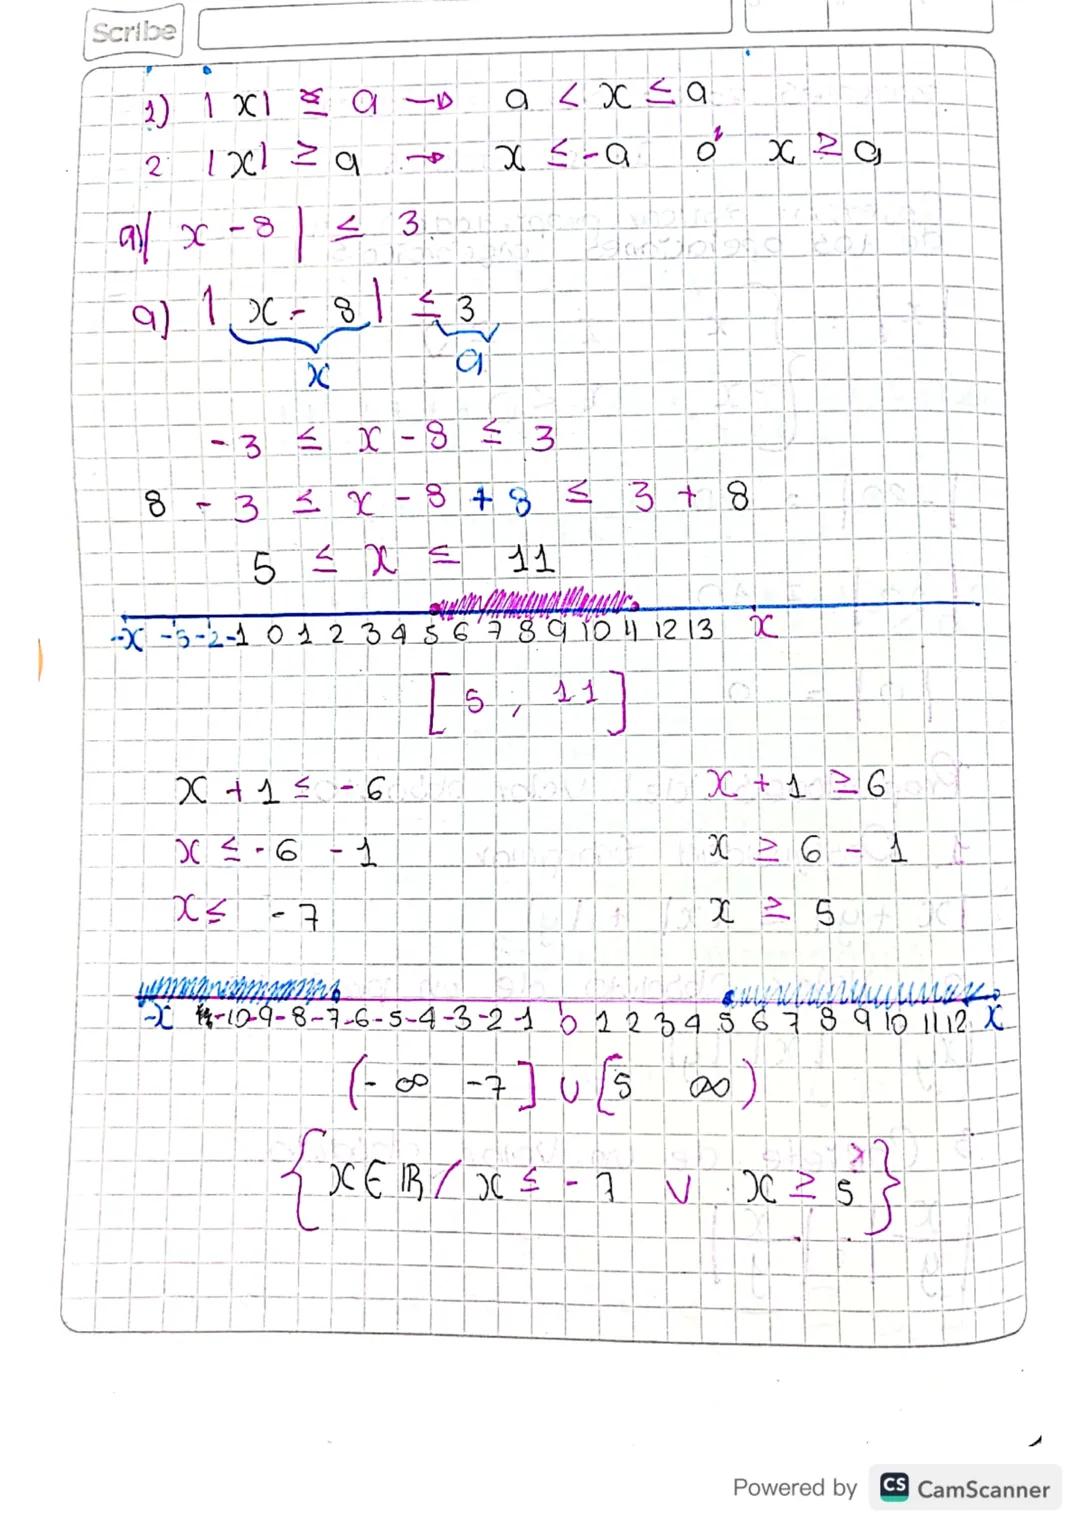 Scribe
1) |x| ≤ a → a < x ≤ a
2 |x| ≥ a → x ≤ -a ó x ≥ a
a) | x - 8 | ≤ 3
a) | x - 8 | ≤ 3
x a
-3 ≤ x - 8 ≤ 3
8 - 3 ≤ x - 8 + 8 ≤ 3 + 8
5 ≤ x ≤ 11
-x -3 -2 -1 0 1 2 3 4 5 6 7 8 9 10 11 12 13 x
[5 , 11]
x + 1 ≤ -6 x + 1 ≥ 6
x ≤ -6 - 1 x ≥ 6 - 1
x ≤ -7 x ≥ 5
-x -10 -9 -8 -7 -6 -5 -4 -3 -2 -1 0 1 2 3 4 5 6 7 8 9 10 11 12 x
(-∞ -7] ∪ [5 ∞)
{x ∈ ℝ / x ≤ -7 ∨ x ≥ 5}
Powered by CS CamScanner